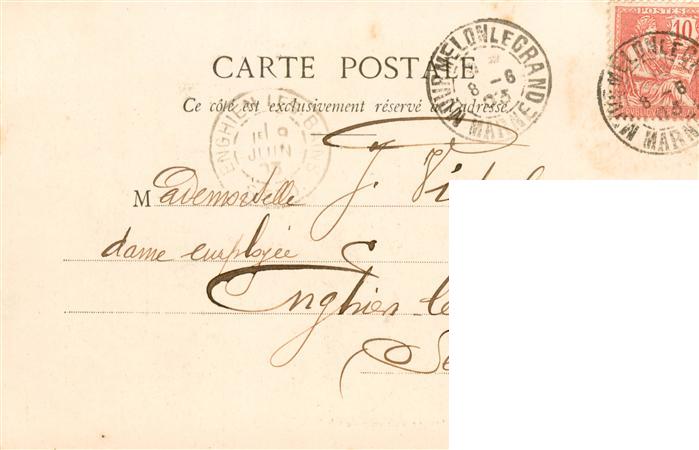 POSTES 10
MOURMELON LE GRAND MARNE
8 - 6
03
MOURMELON LE GRAND MARNE
8 - 6
03
CARTE POSTALE
Ce côté est exclusivement réservé à l'adresse.
ENGHIEN LES BAINS
JUIN
03
Mademoiselle J.
dame employée
Enghien le